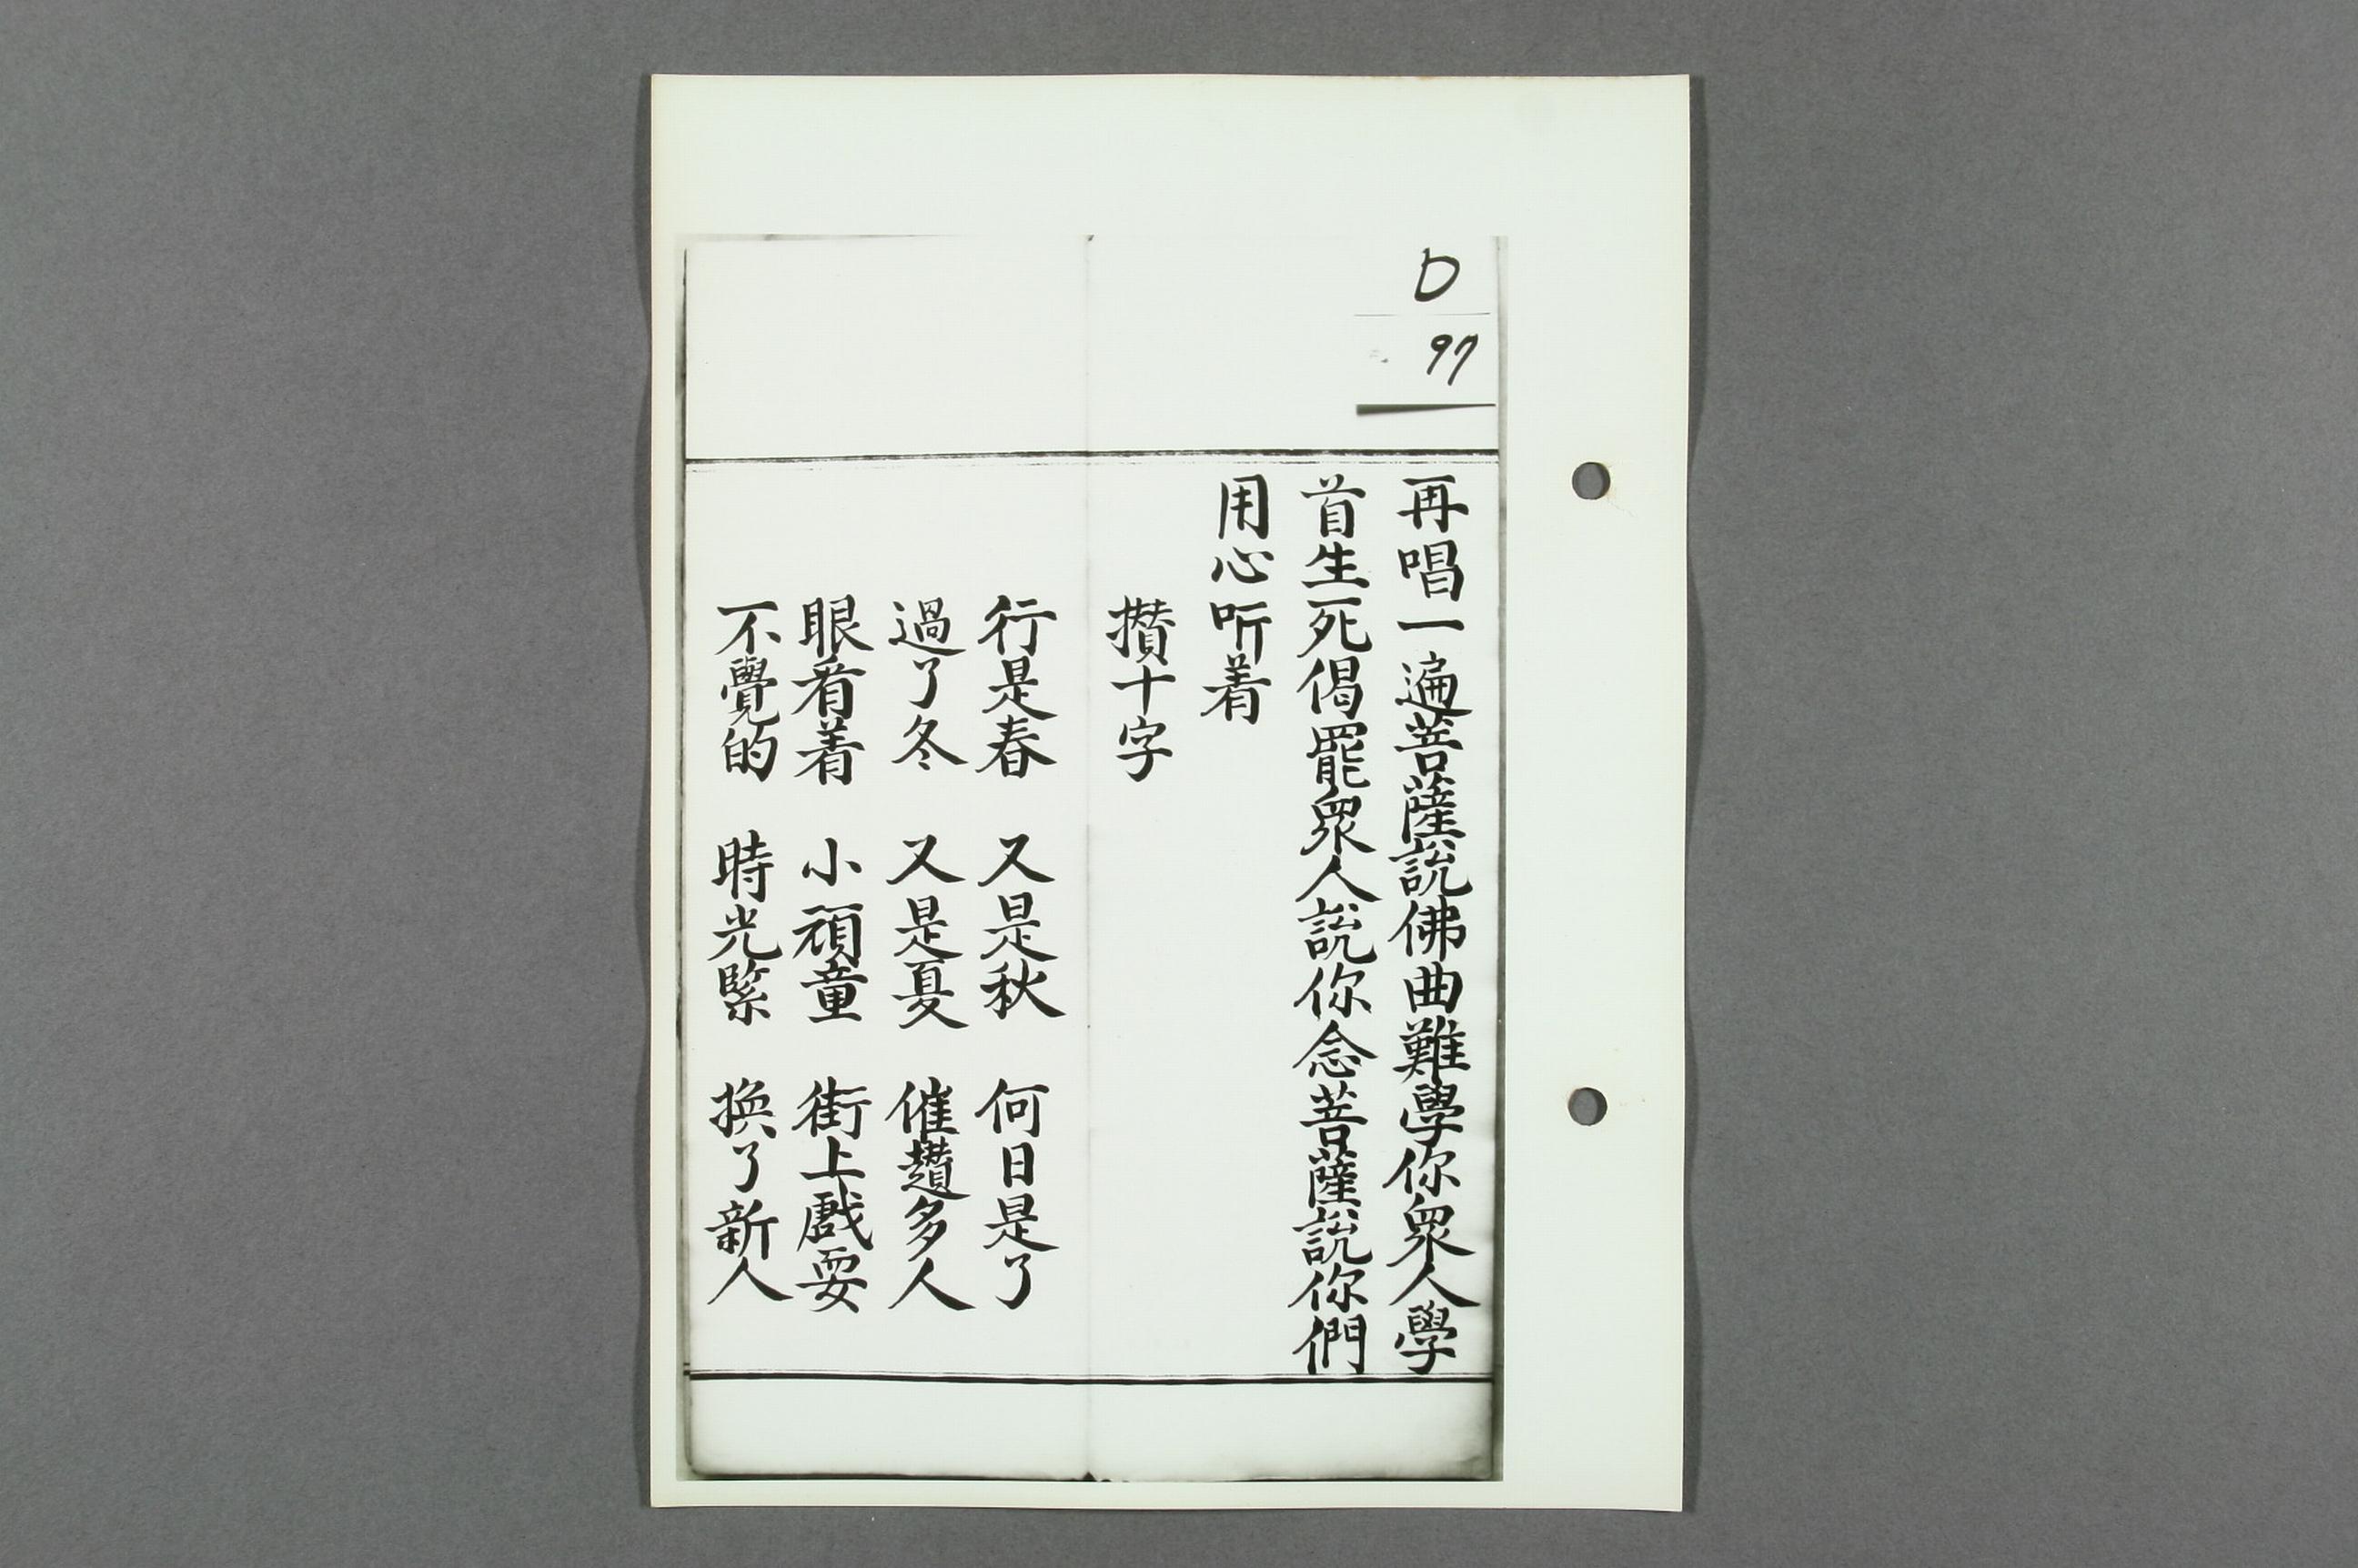 D
97
再唱一遍菩薩說佛曲難學你衆人學
首生死偈罷衆人說你念菩薩說你們
用心听着
攅十字
行是春 又是秋 何日是了
過了冬 又是夏 催趲多人
眼看着 小頑童 街上戲耍
不覺的 時光緊 换了新人